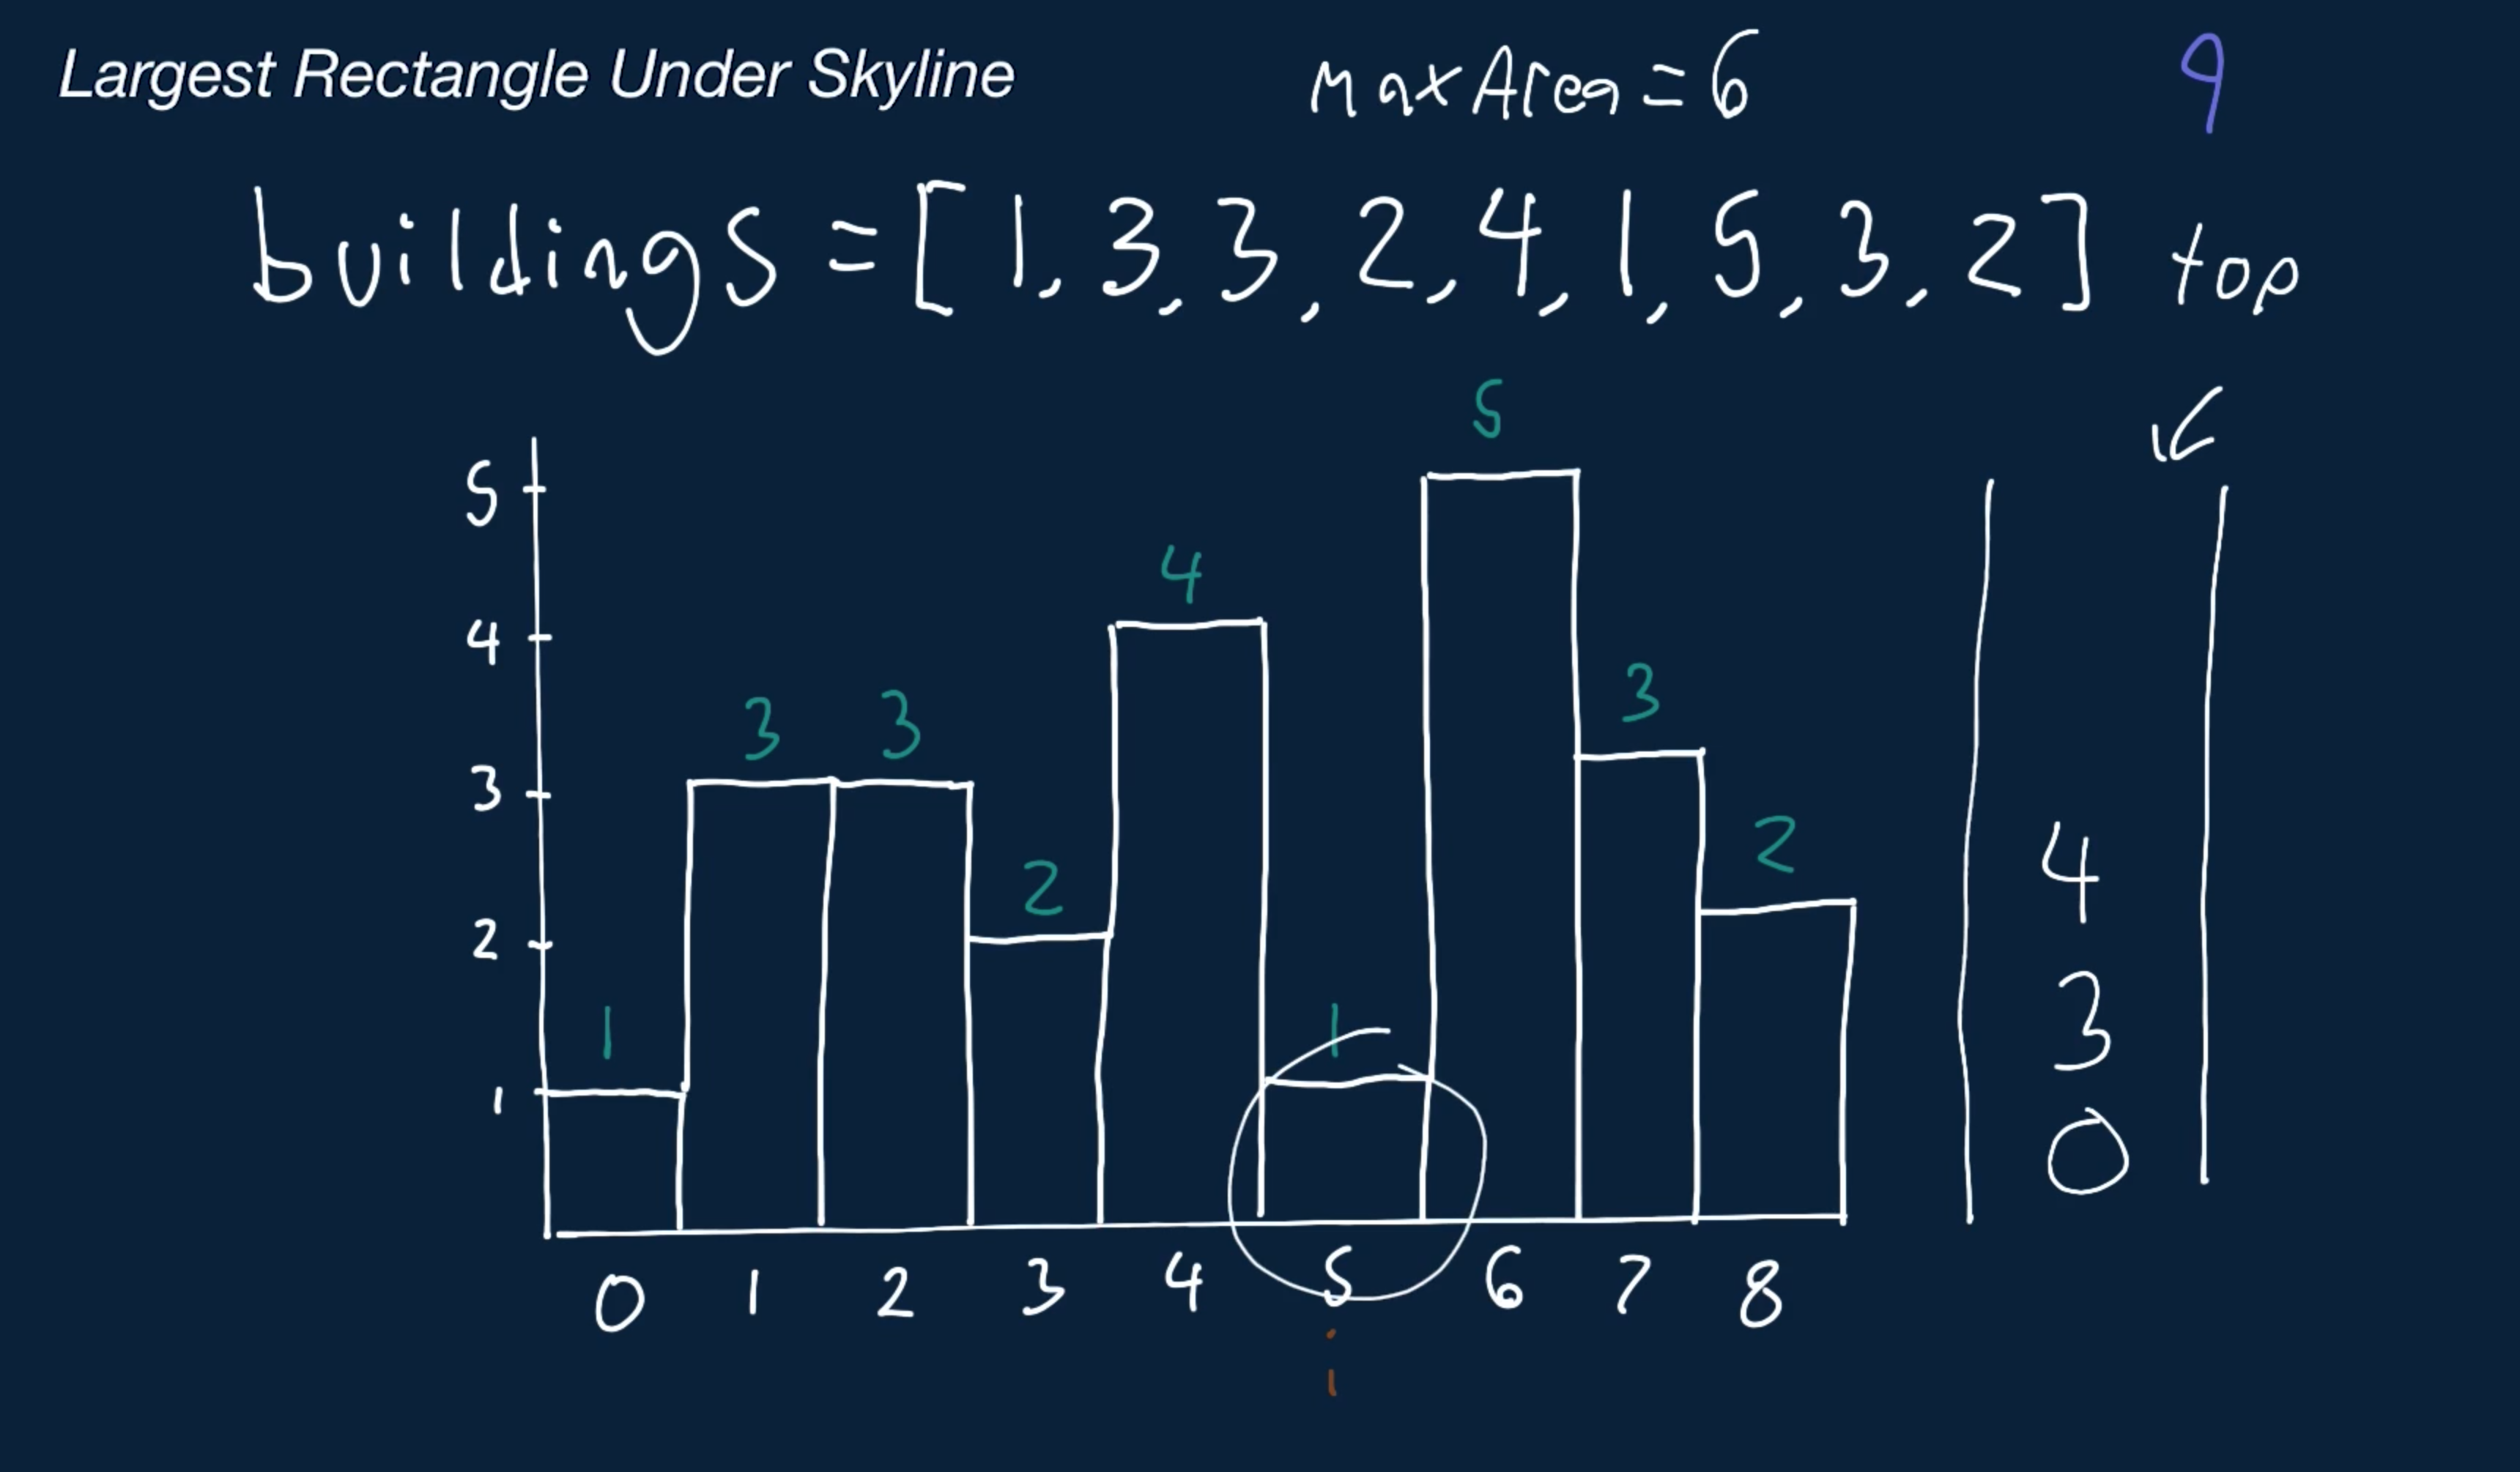 Largest Rectangle Under Skyline
maxArea = 6
9
buildings = [1, 3, 3, 2, 4, 1, 5, 3, 2]
top
5
5
4
4
3
3
3
3
2
2
2
1
1
1
0 1 2 3 4 5 6 7 8
i
4
3
0